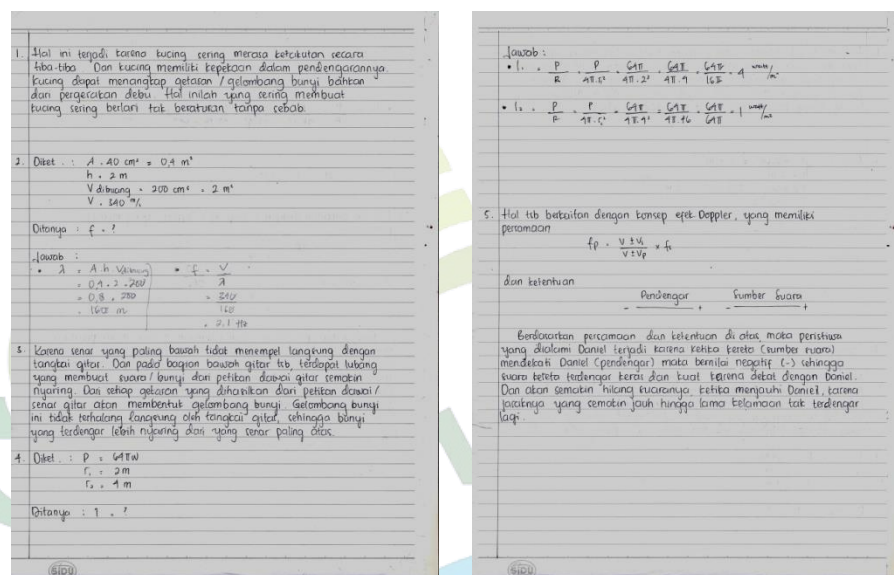 1. Hal ini terjadi karena kucing sering merasa ketakutan secara
tiba-tiba. Dan kucing memiliki kepekaan dalam pendengarannya.
Kucing dapat menangkap getaran / gelombang bunyi bahkan
dari pergerakan debu. Hal inilah yang sering membuat
kucing sering berlari tak beraturan tanpa sebab.
2. Diket. : A = 40 cm² = 0,4 m²
h = 2 m
V dibuang = 200 cm² = 2 m²
V = 340 m/s
Ditanya : f = ?
Jawab :
• λ = A.h V
• f = V/λ
= 0,4 . 2 . 200
= 0,8 . 200
= 340/160
= 160 m
= 2.1 Hz
3. Karena senar yang paling bawah tidak menempel langsung dengan
tangkai gitar. Dan pada bagian bawah gitar tsb, terdapat lubang
yang membuat suara / bunyi dari petikan dawai gitar semakin
nyaring. Dari setiap getaran yang dihasilkan dari petikan dawai /
senar gitar akan membentuk gelombang bunyi. Gelombang bunyi
ini tidak terhalang langsung oleh tangkai gitar, sehingga bunyi
yang terdengar lebih nyaring dari yang senar paling atas.
4. Diket. : P = 64πW
r₁ = 2m
r₂ = 4 m
Ditanya : 1 = ?
SIDU
Jawab :
• I₁ = P/R = P/4π.r₁² = 64π/4π.2² = 64π/4π.4 = 64π/16π = 4 watt/m²
• I₂ = P/R = P/4π.r₂² = 64π/4π.4² = 64π/4π.16 = 64π/64π = 1 watt/m²
5. Hal tsb berkaitan dengan konsep efek Doppler, yang memiliki
persamaan
fp = V ± Vp / V ± Vs × fs
dan ketentuan
Pendengar Sumber Suara
- + - +
Berdasarkan persamaan dan ketentuan di atas, maka peristiwa
yang dialami Daniel terjadi karena ketika kereta (sumber suara)
mendekati Daniel (pendengar) maka bernilai negatif (-) sehingga
suara kereta terdengar keras dan kuat karena dekat dengan Daniel.
Dan akan semakin hilang suaranya ketika menjauhi Daniel, karena
jaraknya yang semakin jauh hingga lama kelamaan tak terdengar
lagi.
SIDU